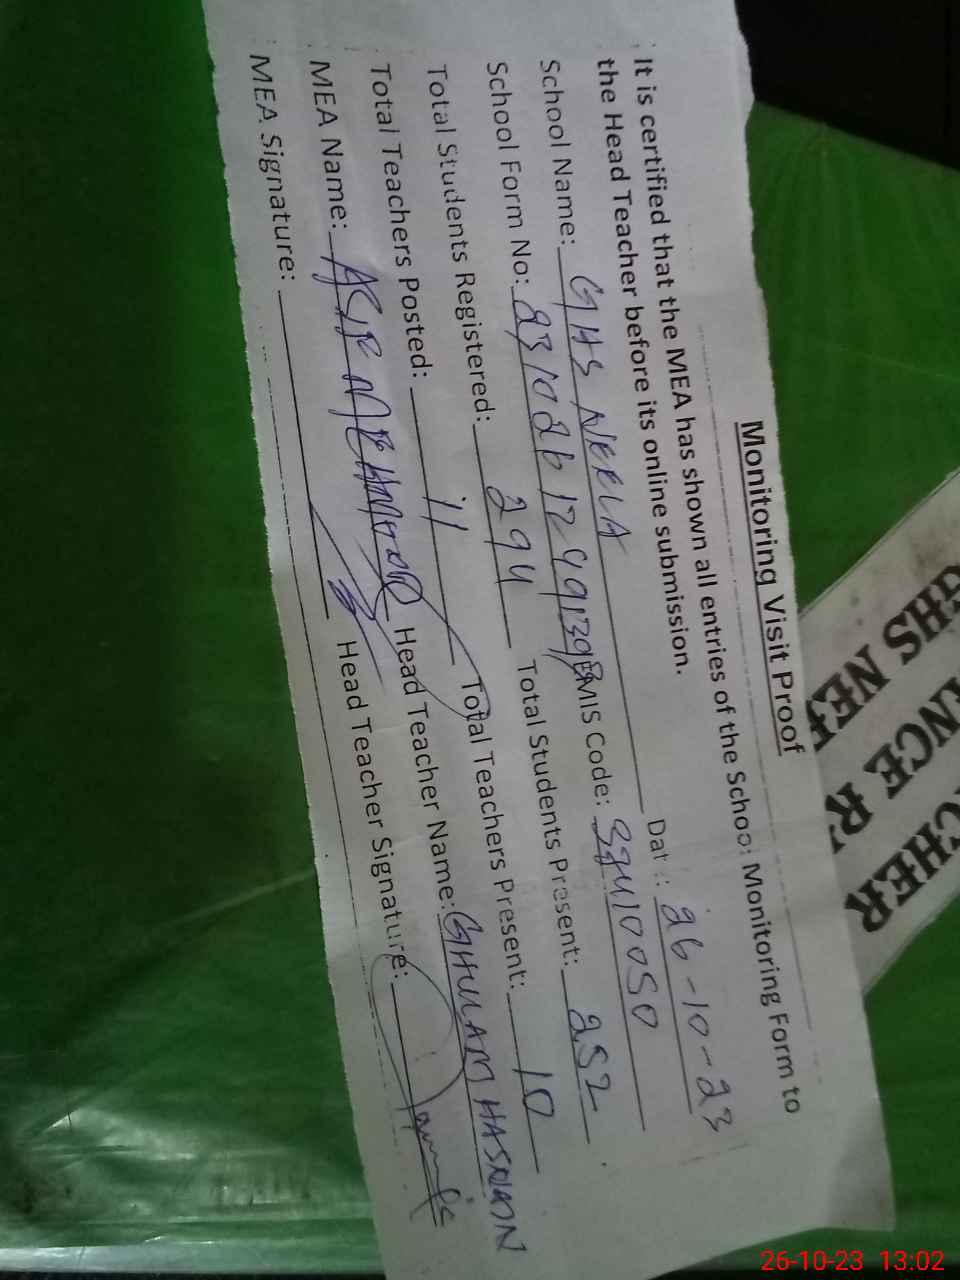 Monitoring Visit Proof
It is certified that the MEA has shown all entries of the School Monitoring Form to
the Head Teacher before its online submission.
Dat : 26-10-23
School Name: GHS NEELA
School Form No: EMIS Code:
Total Students Registered: 294 Total Students Present: 252
Total Teachers Posted: 11 Total Teachers Present: 10
MEA Name: Head Teacher Name: GHULAM HASNAIN
MEA Signature: Head Teacher Signature:
GHS NEE
NCE R
CHER
26-10-23 13:02